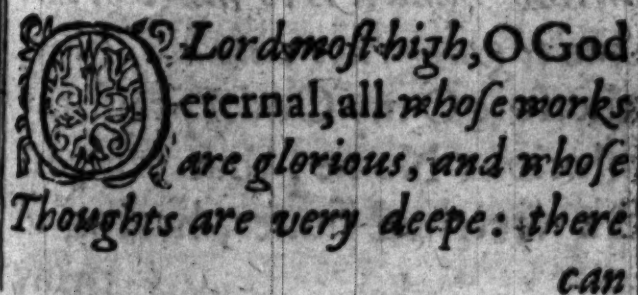 O Lord moſt high, O God
eternal, all whoſe works
are glorious, and whoſe
Thoughts are very deepe: there
can